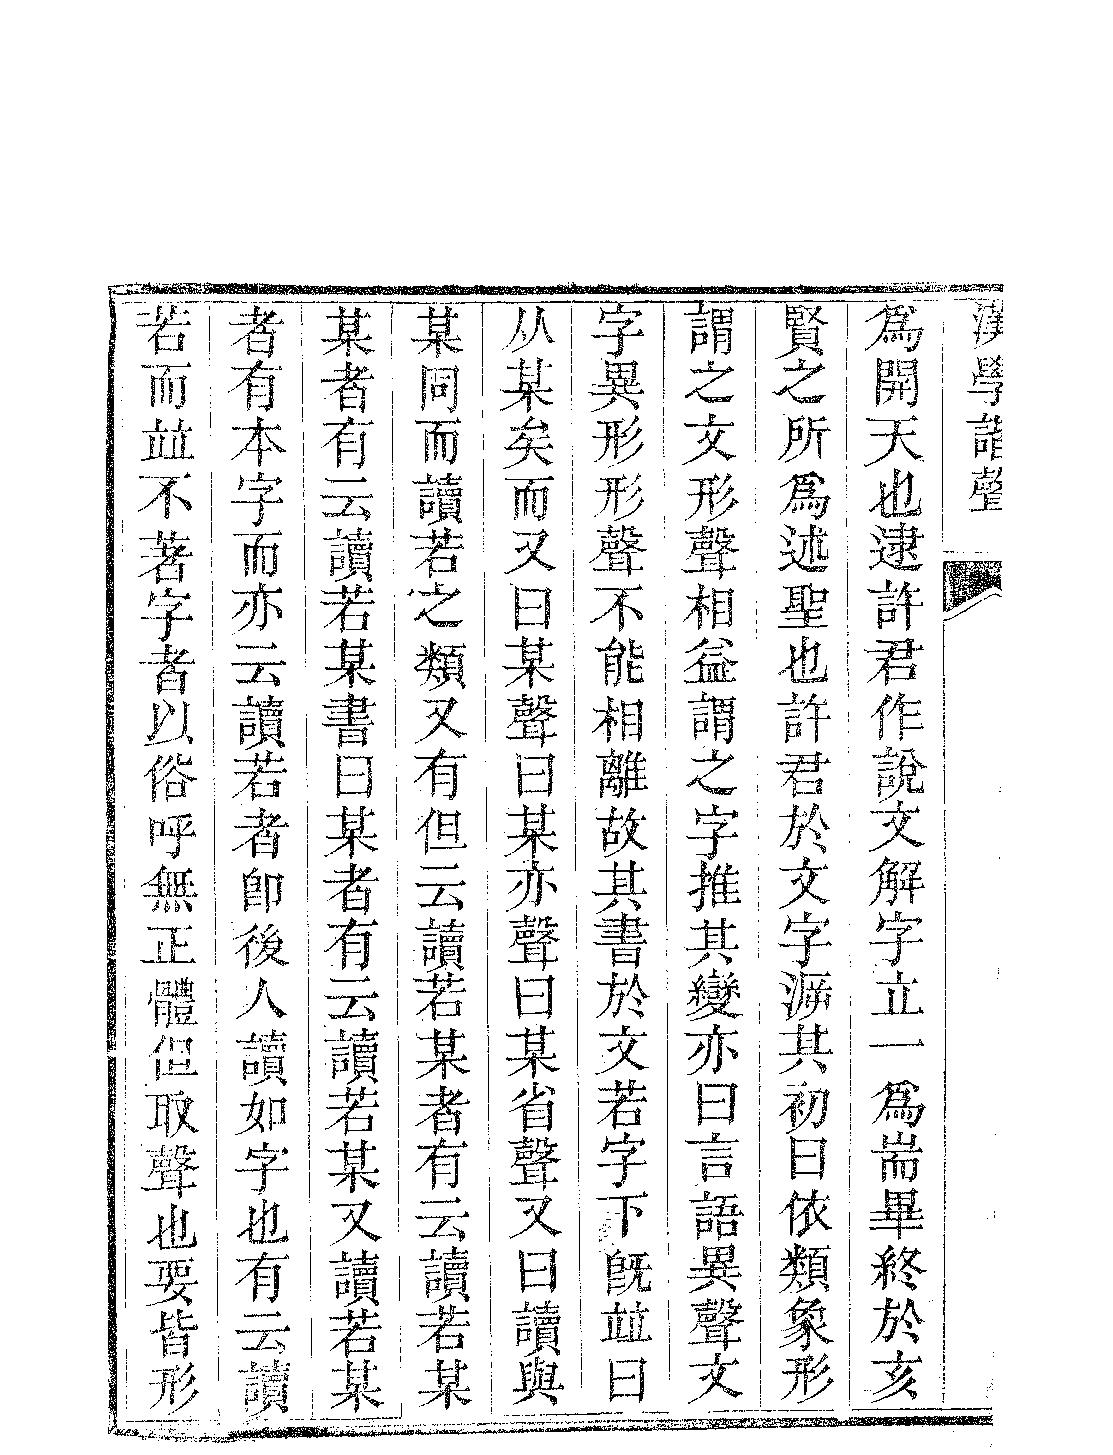 漢學諧聲
爲開天也逮許君作說文解字立一爲耑畢終於亥
賢之所爲述聖也許君於文字㴑其初曰依類象形
謂之文形聲相益謂之字推其變亦曰言語異聲文
字異形形聲不能相離故其書於文若字下旣並曰
从某矣而又曰某聲曰某亦聲曰某省聲又曰讀與
某同而讀若之類又有但云讀若某者有云讀若某
某者有云讀若某書曰某者有云讀若某又讀若某
者有本字而亦云讀若者卽後人讀如字也有云讀
若而並不著字者以俗呼無正體但取聲也要皆形